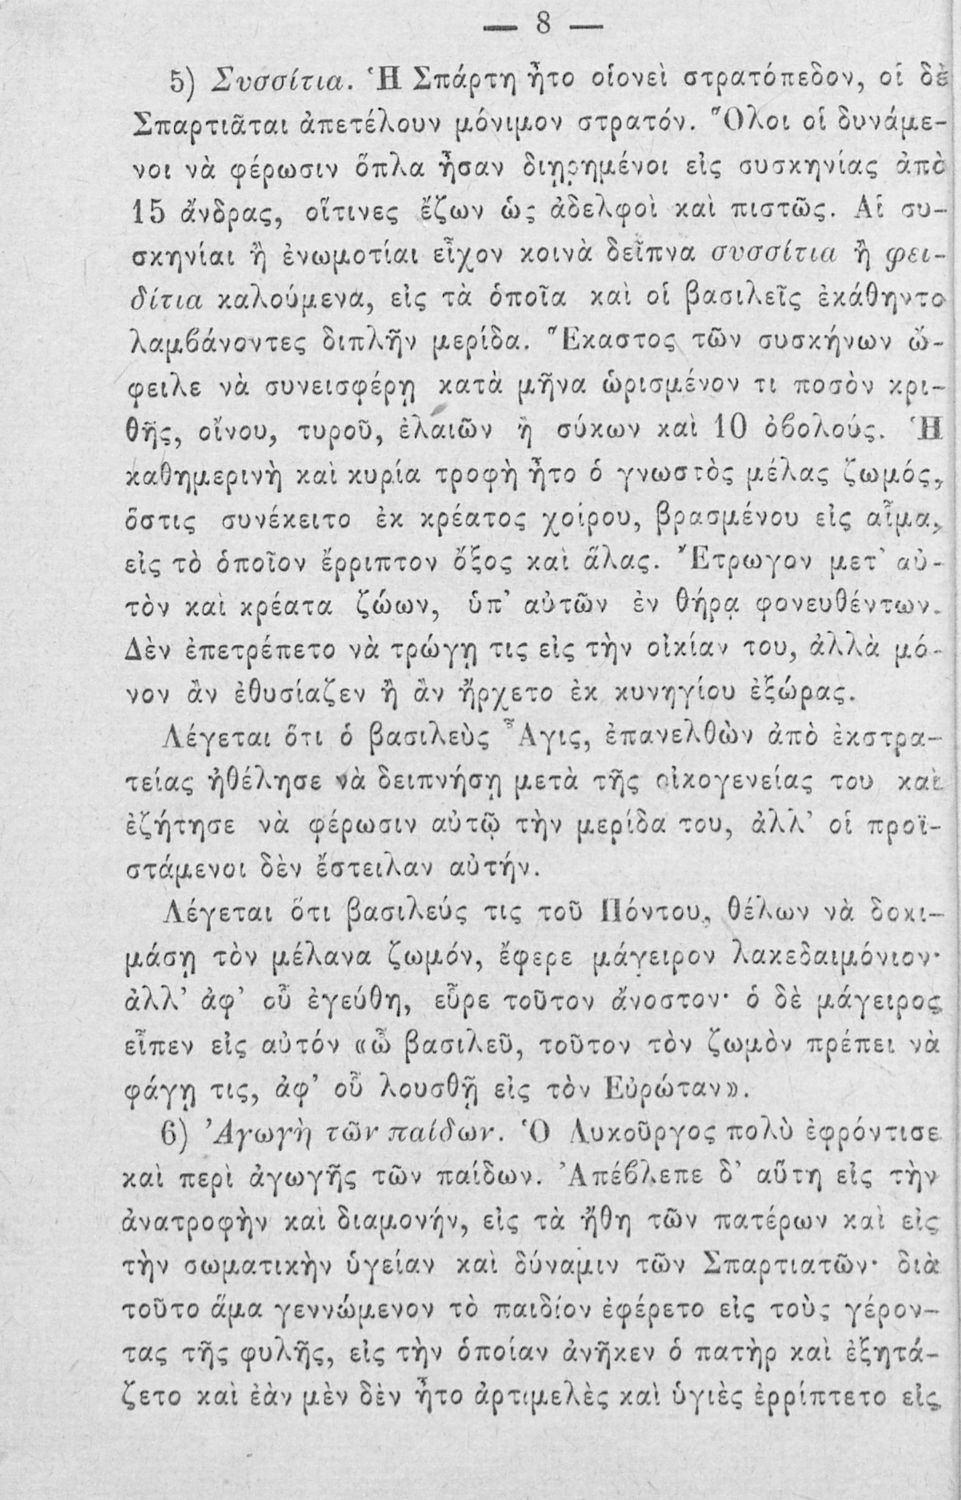 — 8 —
5) Συσσίτια. Ἡ Σπάρτη ἦτο οἱονεὶ στρατόπεδον, οἱ δὲ
Σπαρτιᾶται ἀπετέλουν μόνιμον στρατόν. Ὅλοι οἱ δυνάμε-
νοι νὰ φέρωσιν ὅπλα ἦσαν διῃρημένοι εἰς συσκηνίας ἀπὸ
15 ἄνδρας, οἵτινες ἔζων ὡς ἀδελφοὶ καὶ πιστῶς. Αἱ συ-
σκηνίαι ἢ ἐνωμοτίαι εἶχον κοινὰ δεῖπνα συσσίτια ἢ φει-
δίτια καλούμενα, εἰς τὰ ὁποῖα καὶ οἱ βασιλεῖς ἐκάθηντο
λαμβάνοντες διπλῆν μερίδα. Ἕκαστος τῶν συσκήνων ὤ-
φειλε νὰ συνεισφέρῃ κατὰ μῆνα ὡρισμένον τι ποσὸν κρι-
θῆς, οἴνου, τυροῦ, ἐλαιῶν ἢ σύκων καὶ 10 ὀβολούς. Ἡ
καθημερινὴ καὶ κυρία τροφὴ ἦτο ὁ γνωστὸς μέλας ζωμός,
ὅστις συνέκειτο ἐκ κρέατος χοίρου, βρασμένου εἰς αἷμα,
εἰς τὸ ὁποῖον ἔρριπτον ὄξος καὶ ἅλας. Ἔτρωγον μετ' αὐ-
τὸν καὶ κρέατα ζώων, ὑπ' αὐτῶν ἐν θήρᾳ φονευθέντων.
Δὲν ἐπετρέπετο νὰ τρώγῃ τις εἰς τὴν οἰκίαν του, ἀλλὰ μό-
νον ἂν ἐθυσίαζεν ἢ ἂν ἤρχετο ἐκ κυνηγίου ἐξώρας.
Λέγεται ὅτι ὁ βασιλεὺς Ἆγις, ἐπανελθὼν ἀπὸ ἐκστρα-
τείας ἠθέλησε νὰ δειπνήσῃ μετὰ τῆς οἰκογενείας του καὶ
ἐζήτησε νὰ φέρωσιν αὐτῷ τὴν μερίδα του, ἀλλ' οἱ προϊ-
στάμενοι δὲν ἔστειλαν αὐτήν.
Λέγεται ὅτι βασιλεύς τις τοῦ Πόντου, θέλων νὰ δοκι-
μάσῃ τὸν μέλανα ζωμόν, ἔφερε μάγειρον λακεδαιμόνιον·
ἀλλ' ἀφ' οὗ ἐγεύθη, εὗρε τοῦτον ἄνοστον· ὁ δὲ μάγειρος
εἶπεν εἰς αὐτόν «ὦ βασιλεῦ, τοῦτον τὸν ζωμὸν πρέπει νὰ
φάγῃ τις, ἀφ' οὗ λουσθῇ εἰς τὸν Εὐρώταν».
6) Ἀγωγὴ τῶν παίδων. Ὁ Λυκοῦργος πολὺ ἐφρόντισε
καὶ περὶ ἀγωγῆς τῶν παίδων. Ἀπέβλεπε δ' αὕτη εἰς τὴν
ἀνατροφὴν καὶ διαμονήν, εἰς τὰ ἤθη τῶν πατέρων καὶ εἰς
τὴν σωματικὴν ὑγείαν καὶ δύναμιν τῶν Σπαρτιατῶν· διὰ
τοῦτο ἅμα γεννώμενον τὸ παιδίον ἐφέρετο εἰς τοὺς γέρον-
τας τῆς φυλῆς, εἰς τὴν ὁποίαν ἀνῆκεν ὁ πατὴρ καὶ ἐξητά-
ζετο καὶ ἐὰν μὲν δὲν ἦτο ἀρτιμελὲς καὶ ὑγιὲς ἐρρίπτετο εἰς